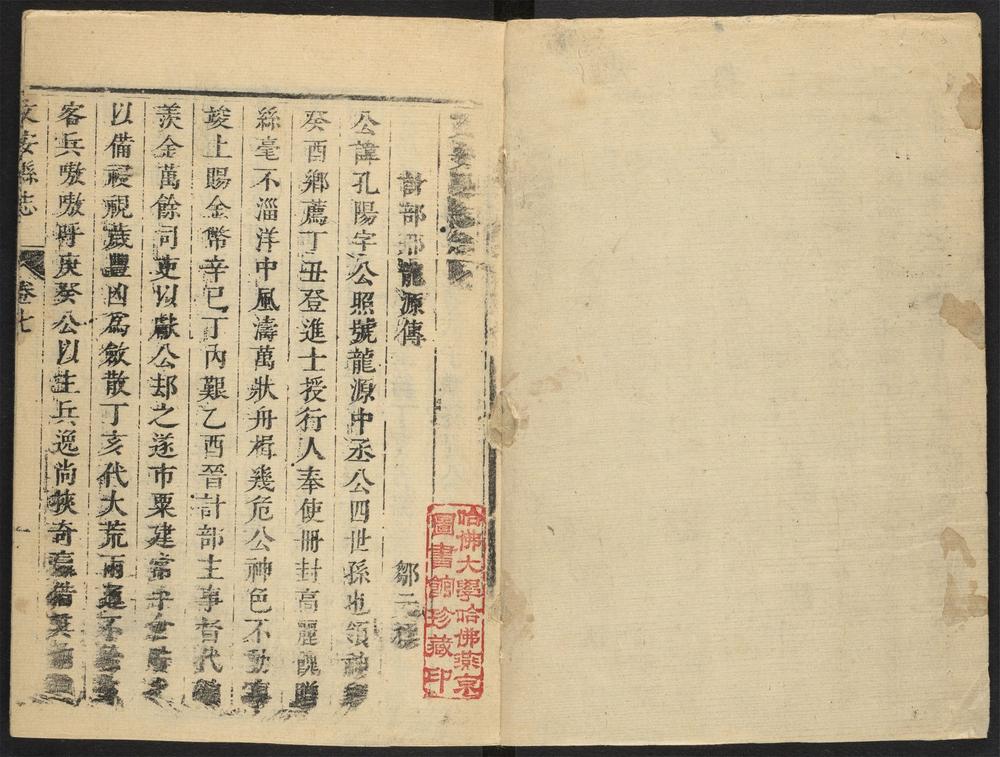 計部邢龍源傳
鄒元
公諱孔陽字公照號龍源中丞公四世孫也領
癸酉鄉薦丁丑登進士授行人奉使冊封高麗餽贈
絲毫不淄洋中風濤萬狀舟楫幾危公神色不動事
竣上賜金幣辛巳丁內艱乙酉晉計部主事督代
羨金萬餘司吏以獻公却之遂市粟建常平倉
以備祲視歲豐凶爲斂散丁亥代大荒雨
客兵嗷嗷呼庚癸公以主兵逸尚挾奇羸借其
文安縣志
卷七
一
哈佛大學哈佛燕京
圖書館珍藏印